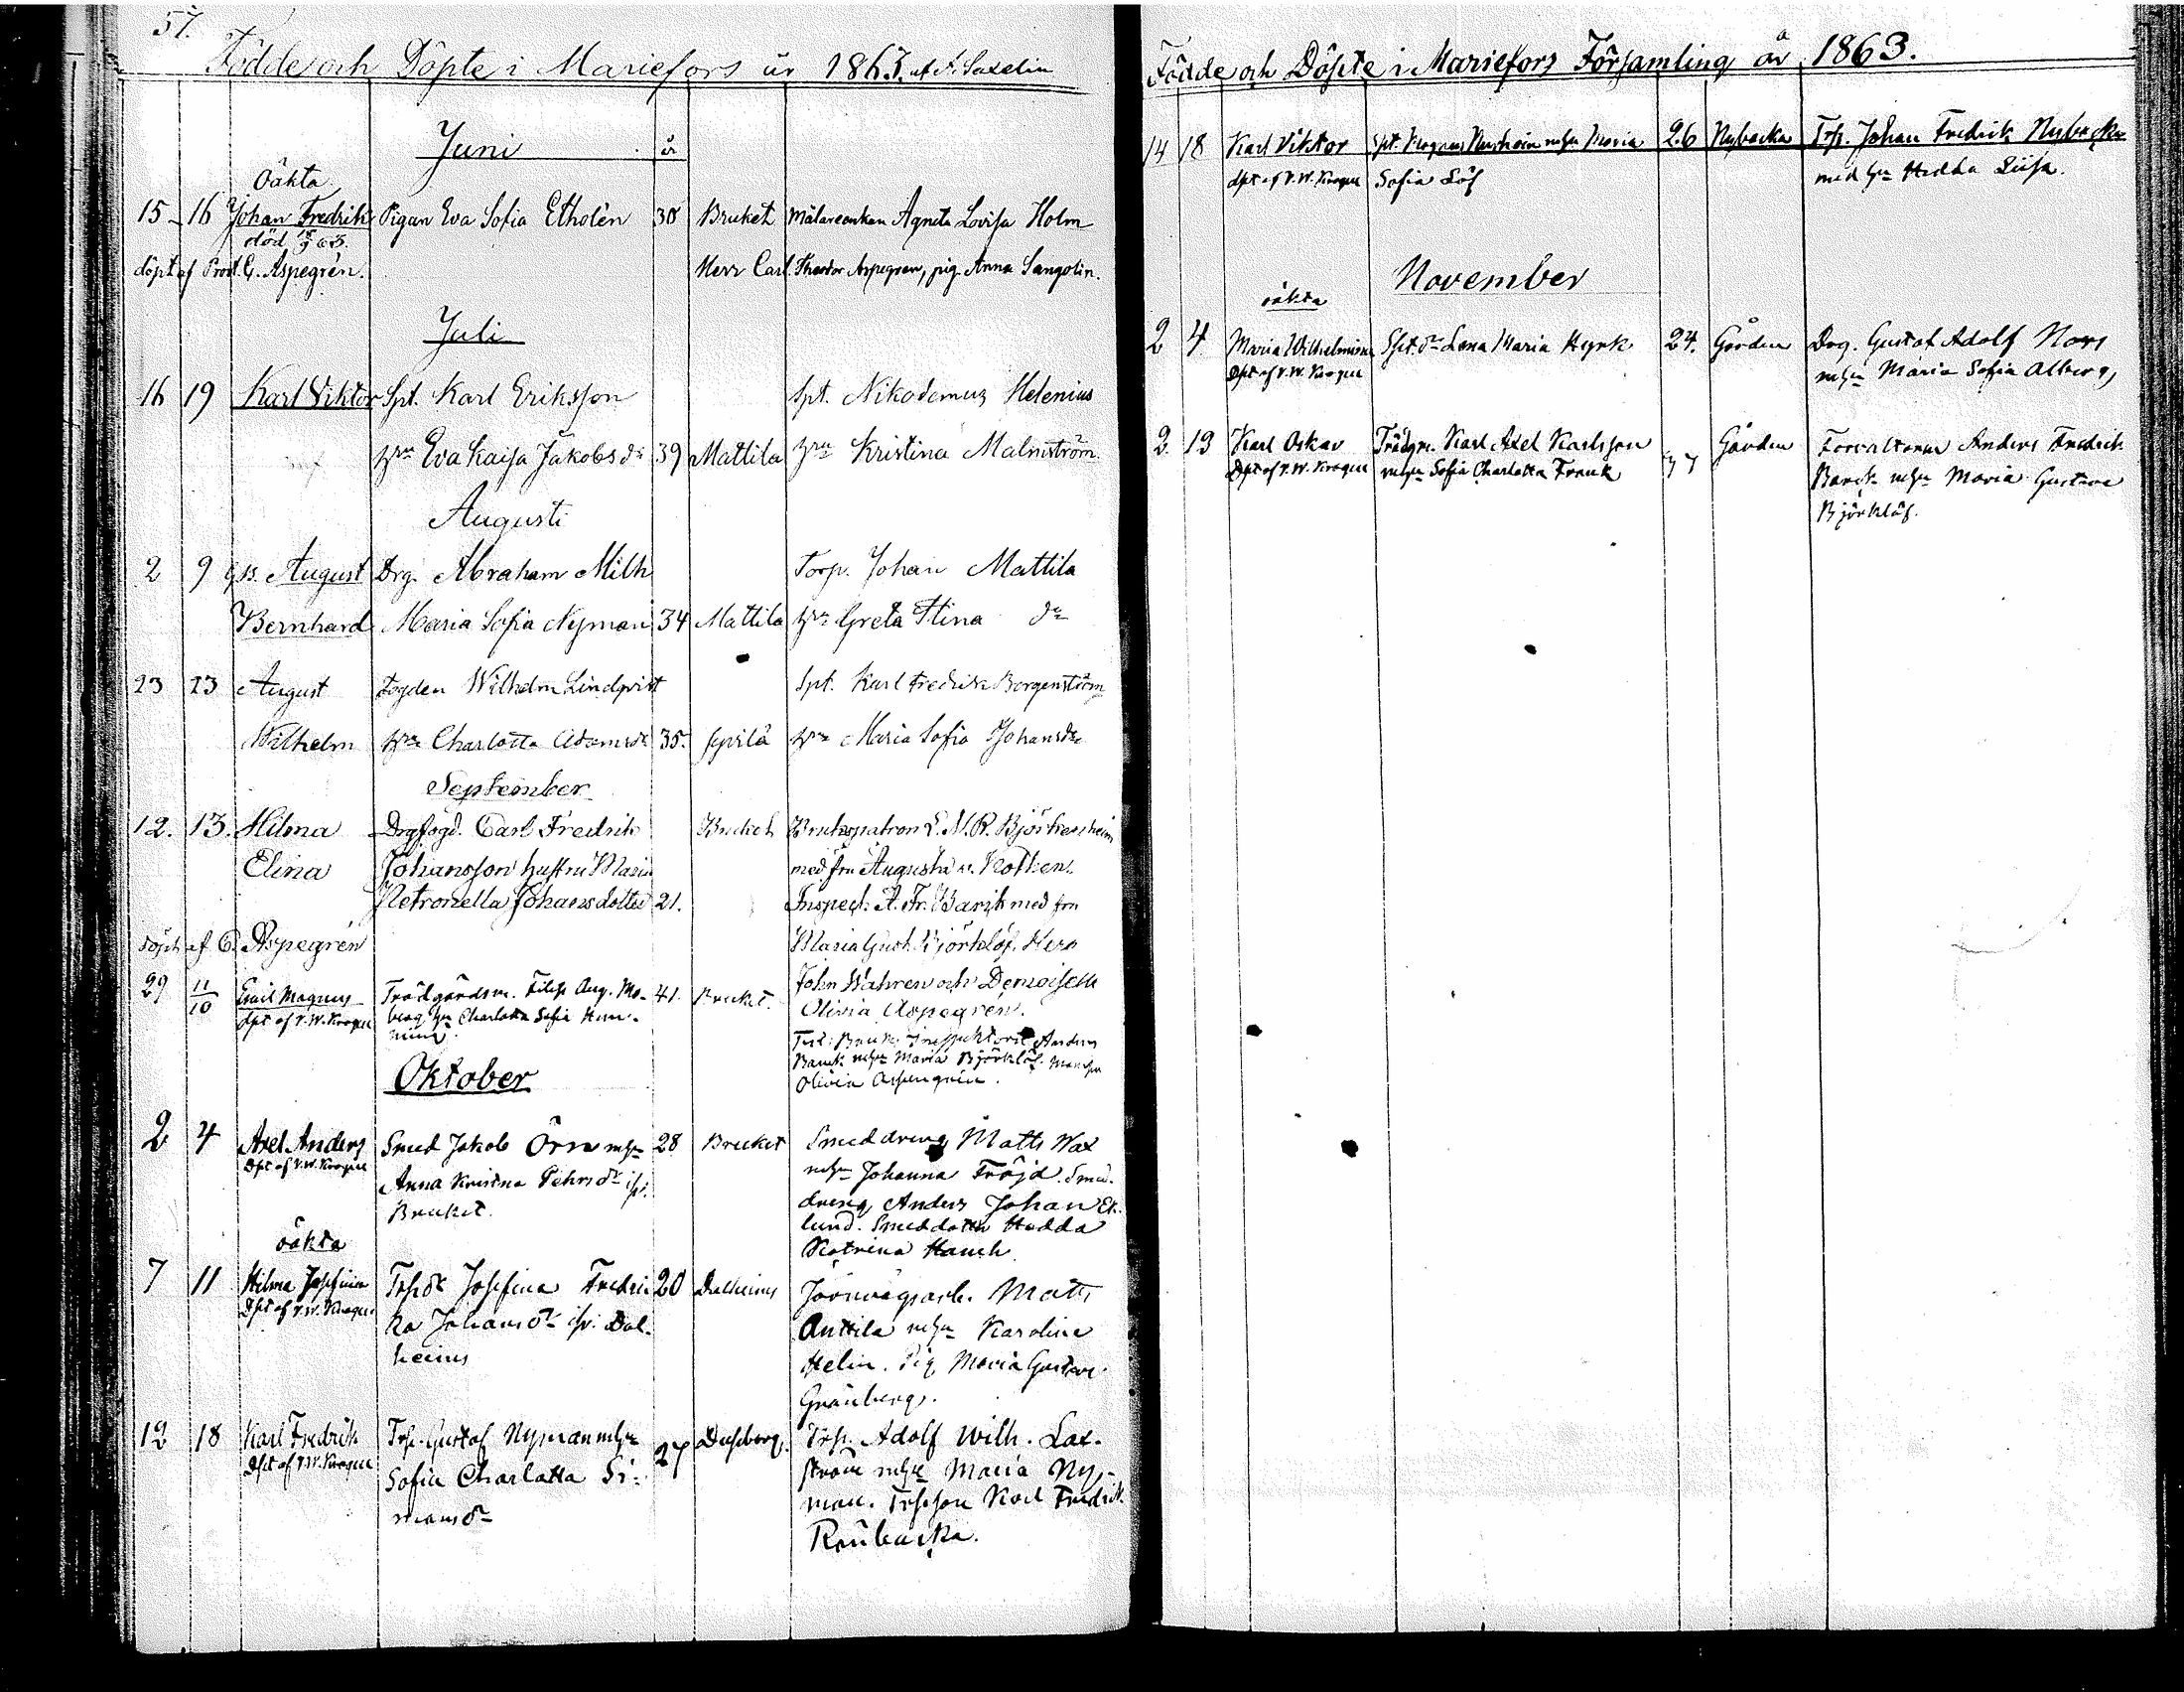 57.
Födde och Döpte i Mariefors år 1863. af A. Saxelin
Juni
år
Oäkta
15 16 Johan Fredrik Pigan Eva Sofia Etholén 30 Bruket Målareenkan Agneta Lovisa Holm
död
döpt af Prost. G. Aspegrén. Herr Carl Theodor Aspegren, pig. Anna Sangolin.
Juli
16 19 Karl Viktor Spt. Karl Eriksson Spt. Nikodemus Helenius
hru Eva Kaisa Jakobsdr 39 Mattila hru Kristina Malmström
Augusti
2 9 August Drg. Abraham Milh Torp. Johan Mattila
Bernhard Maria Sofia Nyman 34 Mattila hru Greta Stina dr
23 23 August Fogden Wilhelm Lindqvist Spt. Karl Fredrik Borgenström
Wilhelm hru Charlotta Adamsdr 35. hru Maria Sofia Johansdr
September
12. 13. Hilma Drgfogd. Carl Fredrik Bruket Brukspatron L. M. R. Björkenheim
Elina Johansson hustru Maria med fru Augusta v. Kothen.
Petronella Johansdotter 21. Inspect. A. Fr. Barck med fru
döpt af G. Aspegrén Maria Gust. Björklöf. Herr
29 11/10 Emil Magnus Trädgårdsm. Filip Aug. Mo- 41. Bruket. John Wahren och Demoiselle
dpt af V. W. Krogell berg hru Charlotta Sofia Olivia Aspegrén.
Bruks Inspektoren Anders
Barck mhru Maria Björklöf.
Olivia Aspengrén.
Oktober
2 4 Axel Anders Smed Jakob Örn mhru 28 Bruket Smeddreng Matts Wax
Dpt af V. W. Krogell Anna Kristina Pehrsdr ifr. mhru Johanna Fröjd. Smed-
Bruket. dreng Anders Johan Ek-
lund. Smeddotter Hedda
Katrina Hauch.
oäkta
7 11 Hilma Josefina Trpdr Josefina Fredri- 20 Dalheims Jernvägsarb. Matts
Dpt af V. W. Krogell ka Johansdr ifr. Dal- Anttila mhru Karolina
heims Helin. Pig. Maria Gustava
Granberg.
12 18 Karl Fredrik Trp. Gustaf Nyman mhru 27 Trp. Adolf Wilh. Lax-
Dpt af V. W. Krogell Sofia Charlotta Si- ström mhru Maria Ny-
monsdr man. Trpson Karl Fredrik
Raubacka.
Födde och Döpte i Mariefors Församling år 1863.
14 18 Karl Viktor Spt. Magnus mhru Maria 26 Nybacka Trp. Johan Fredrik Nybacka
dpt af V. W. Krogell Sofia Löf med hru Hedda Lisa.
November
oäkta
2 4 Maria Wilhelmina Spt.dr Lena Maria Hyrk 24. Gården Drg. Gustaf Adolf Nors
Dpt af V. W. Krogell mhru Maria Sofia Alberg,
2. 13 Karl Oskar Trädgm. Karl Axel Karlsson Gården Förvaltaren Anders Fredrik
Dpt af V. W. Krogell mhru Sofia Charlotta Frank 37 Barck mhru Maria Gustava
Björklöf.